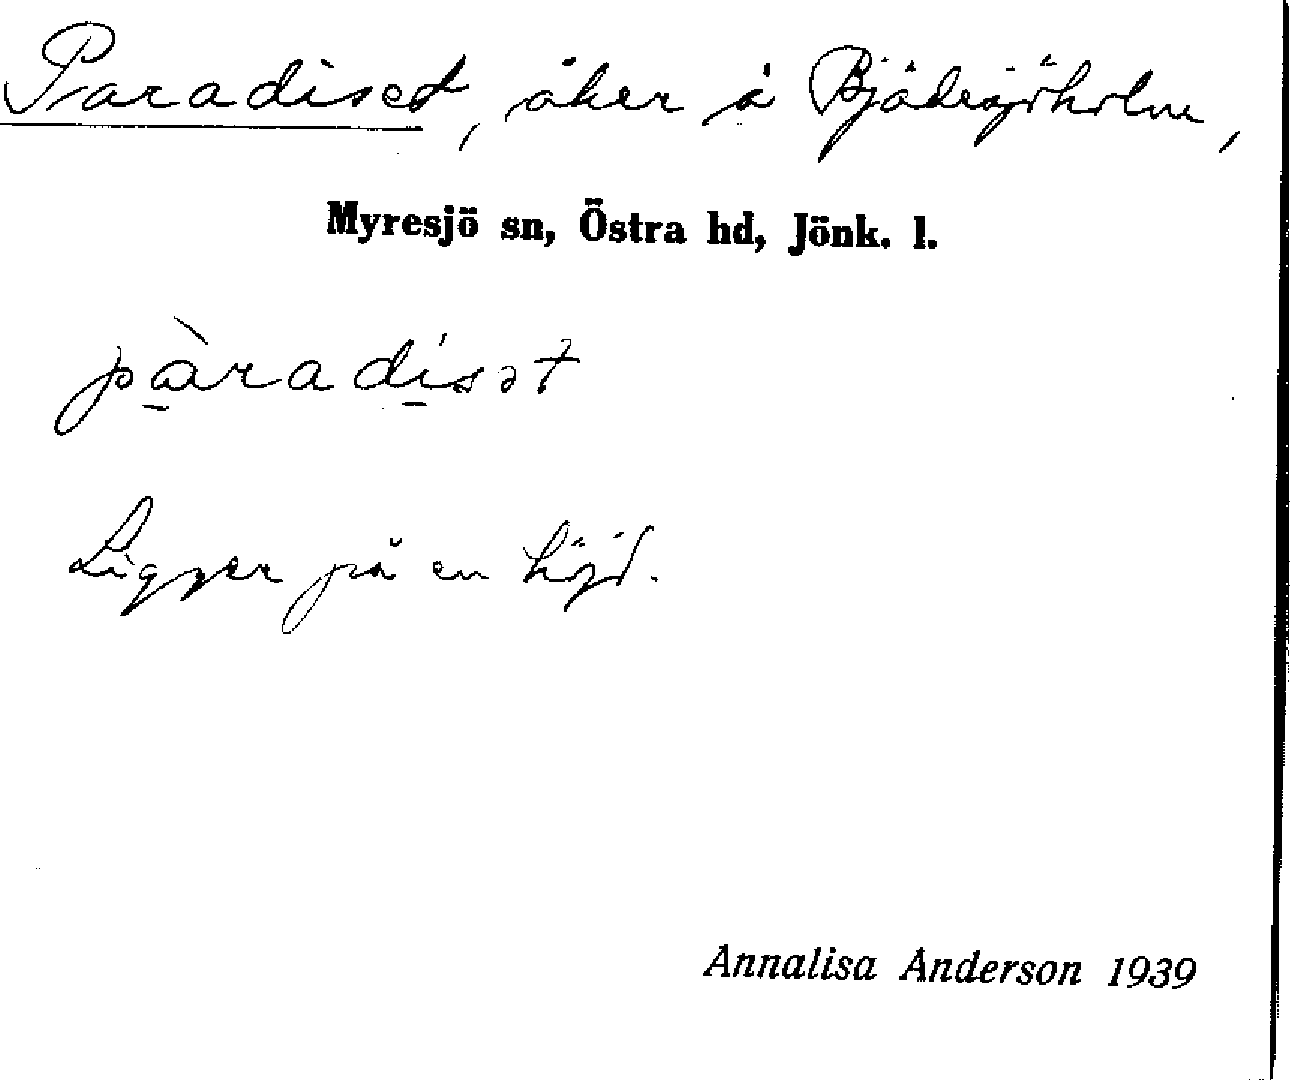 Paradiset, åker å Bjädesjöholm,
Myresjö sn, Östra hd, Jönk. l.
pàradísət
Ligger på en höjd.
Annalisa Anderson 1939